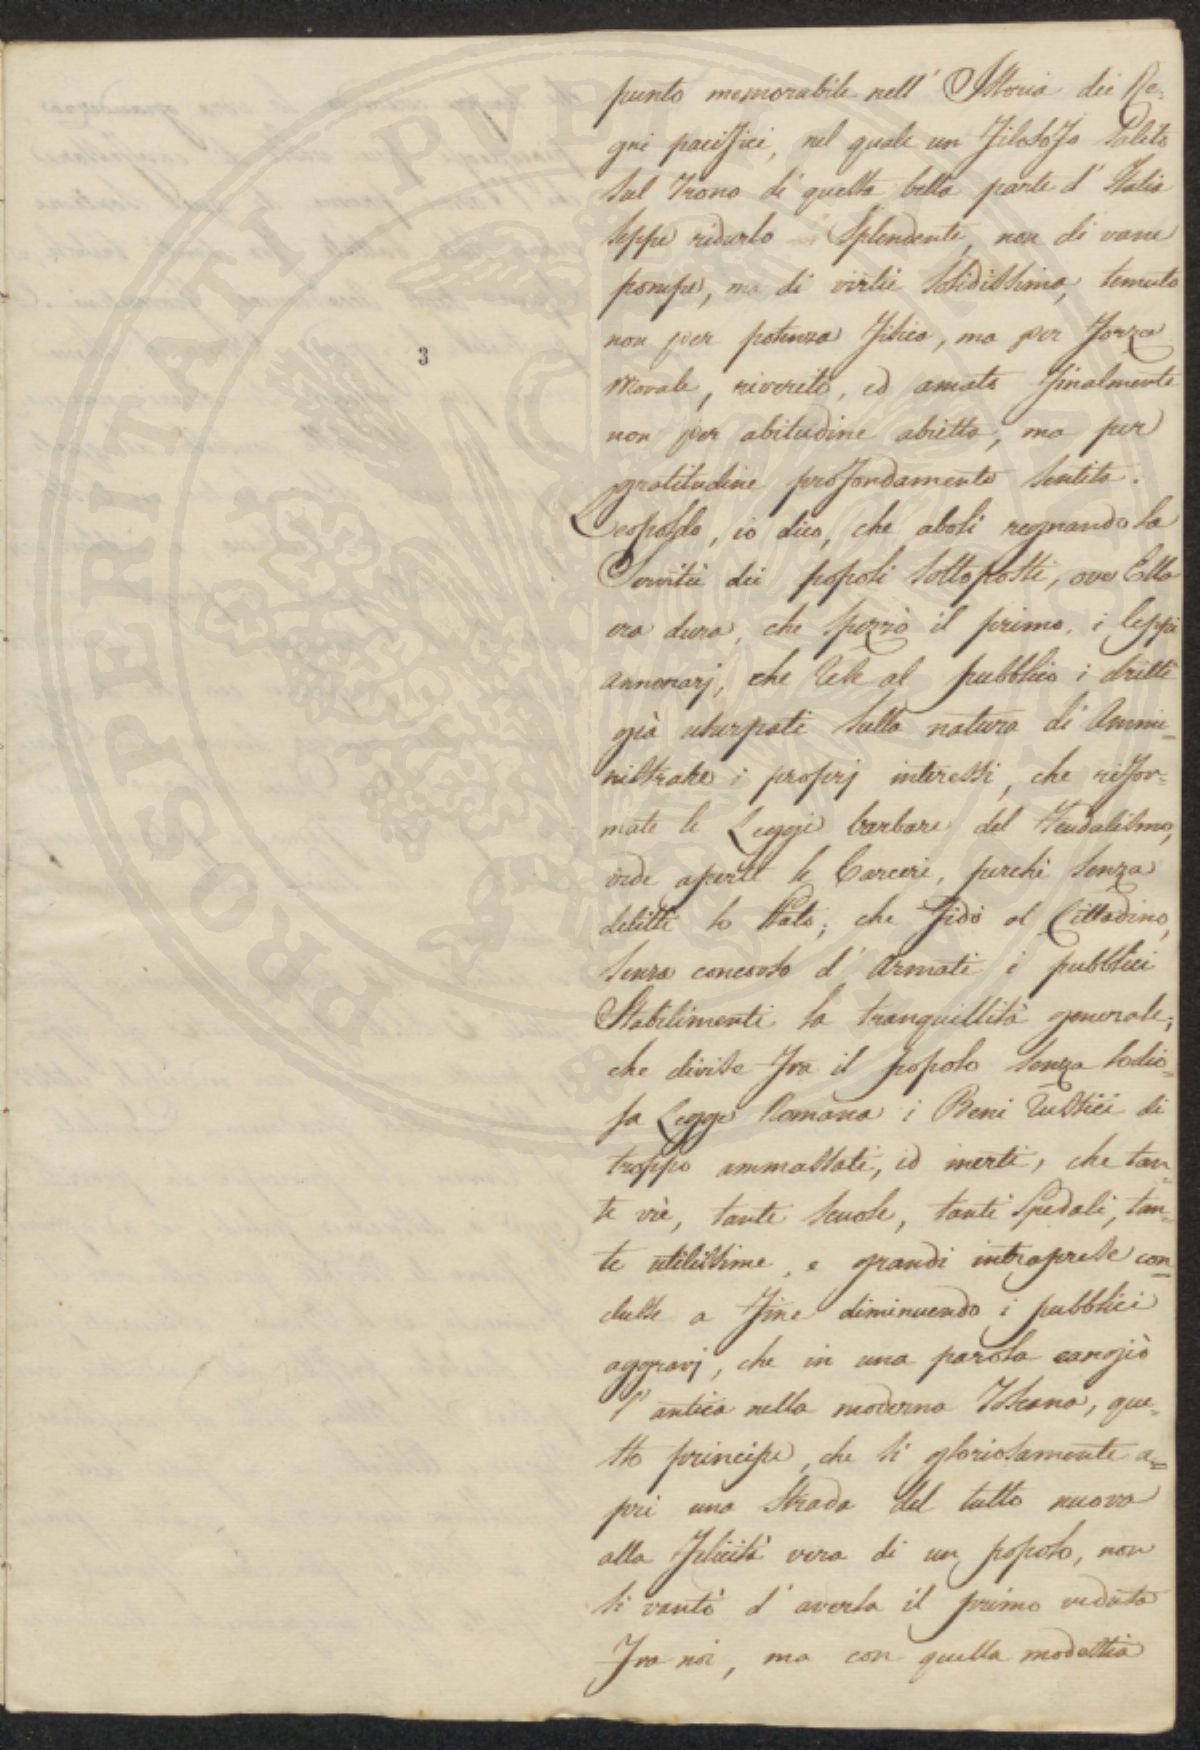 punto memorabile nell' Istoria dei Re-
gni pacifici, nel quale un Filosofo Salito
sul Trono di questa bella parte d' Italia
seppe ridurlo Splendente, non di vane
pompe, ma di virtù solidissima, temuto
non per potenza fisica, ma per Forza
Morale, riverito, ed amato finalmente
non per abitudine abietta, ma per
gratitudine profondamente sentita.
Leopoldo, io dico, che abolì regnando la
Servitù dei popoli sottoposti, ove Ella
era dura, che spezzò il primo i Ceppi
annonarj, che Rese al pubblico i dritti
già usurpati sulla natura di Ammi-
nistrare i proprj interessi, che rifor-
mate le Leggi barbare del Feudalismo,
vide aperte le Carceri, perchè senza
delitti lo Stato; che fidò al Cittadino,
senza concorso d' Armati i pubblici
Stabilimenti la tranquillità generale;
che divise fra il popolo senza lodio-
sa Legge Romana i Beni Rustici di
troppo ammassati, ed inerti, che tan-
te vie, tante scuole, tanti Spedali, tan-
te utilissime, e grandi intraprese con-
dusse a Fine diminuendo i pubblici
aggravj, che in una parola cangiò
l' antica nella moderna Toscana, que-
sto principe, che sì gloriosamente a-
prì una Strada del tutto nuova
alla Felicità vera di un popolo, non
si vantò d' averla il primo veduta
Fra noi, ma con quella modestia
3
PROSPERITATI PVBLI